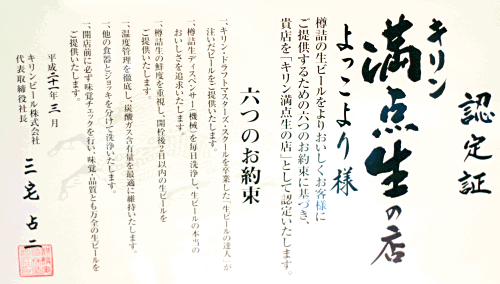 認定証
キリン
満点生の店
よっこより様
樽詰の生ビールをよりおいしくお客様に
ご提供するための六つのお約束に基づき、
貴店を「キリン満点生の店」として認定いたします。
六つのお約束
一、キリン・ドラフトマスターズ・スクールを卒業した「生ビールの達人」が
注いだビールをご提供いたします。
一、樽詰生ディスペンサー(機械)を毎日洗浄し、生ビールの本当の
おいしさを追求いたします。
一、樽詰生の鮮度を重視し、開栓後2日以内の生ビールを
ご提供いたします。
一、温度管理を徹底し、炭酸ガス含有量を最適に維持いたします。
一、他の食器とジョッキを分けて洗浄いたします。
一、開店前に必ず味覚チェックを行い、味覚・品質とも万全の生ビールを
ご提供いたします。
平成二十一年 三月
キリンビール株式会社
代表取締役社長
三宅占二